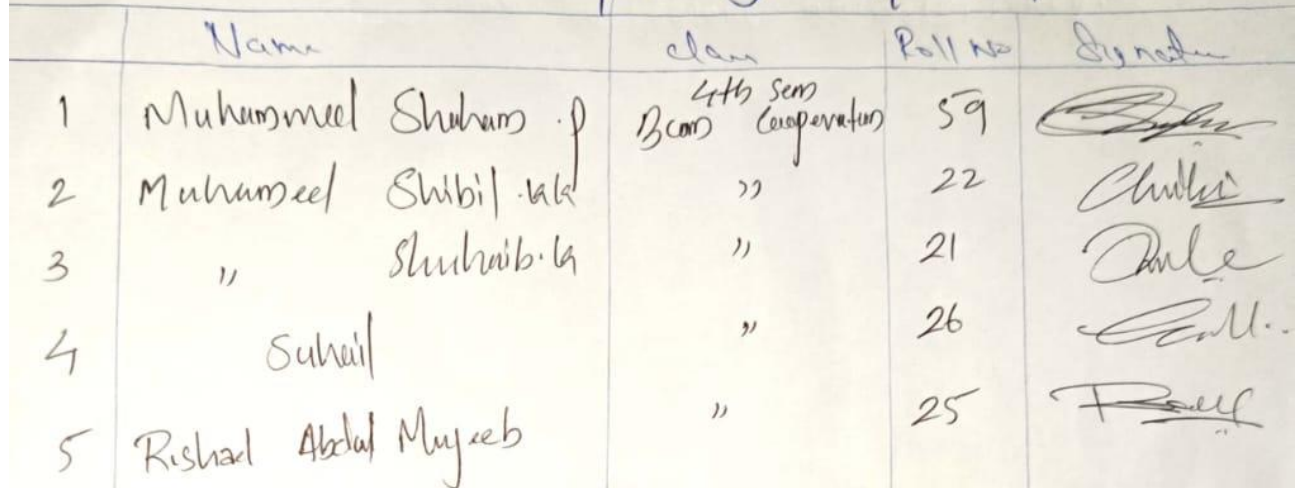 Name Class Roll No Signature
1 Muhammed Shaham .P 4th Sem Bcom Cooperation 59
2 Muhammed Shibil .kk " 22
3 " Shuhaib.k " 21
4 Suhail " 26
5 Rishad Abdul Mujeeb " 25